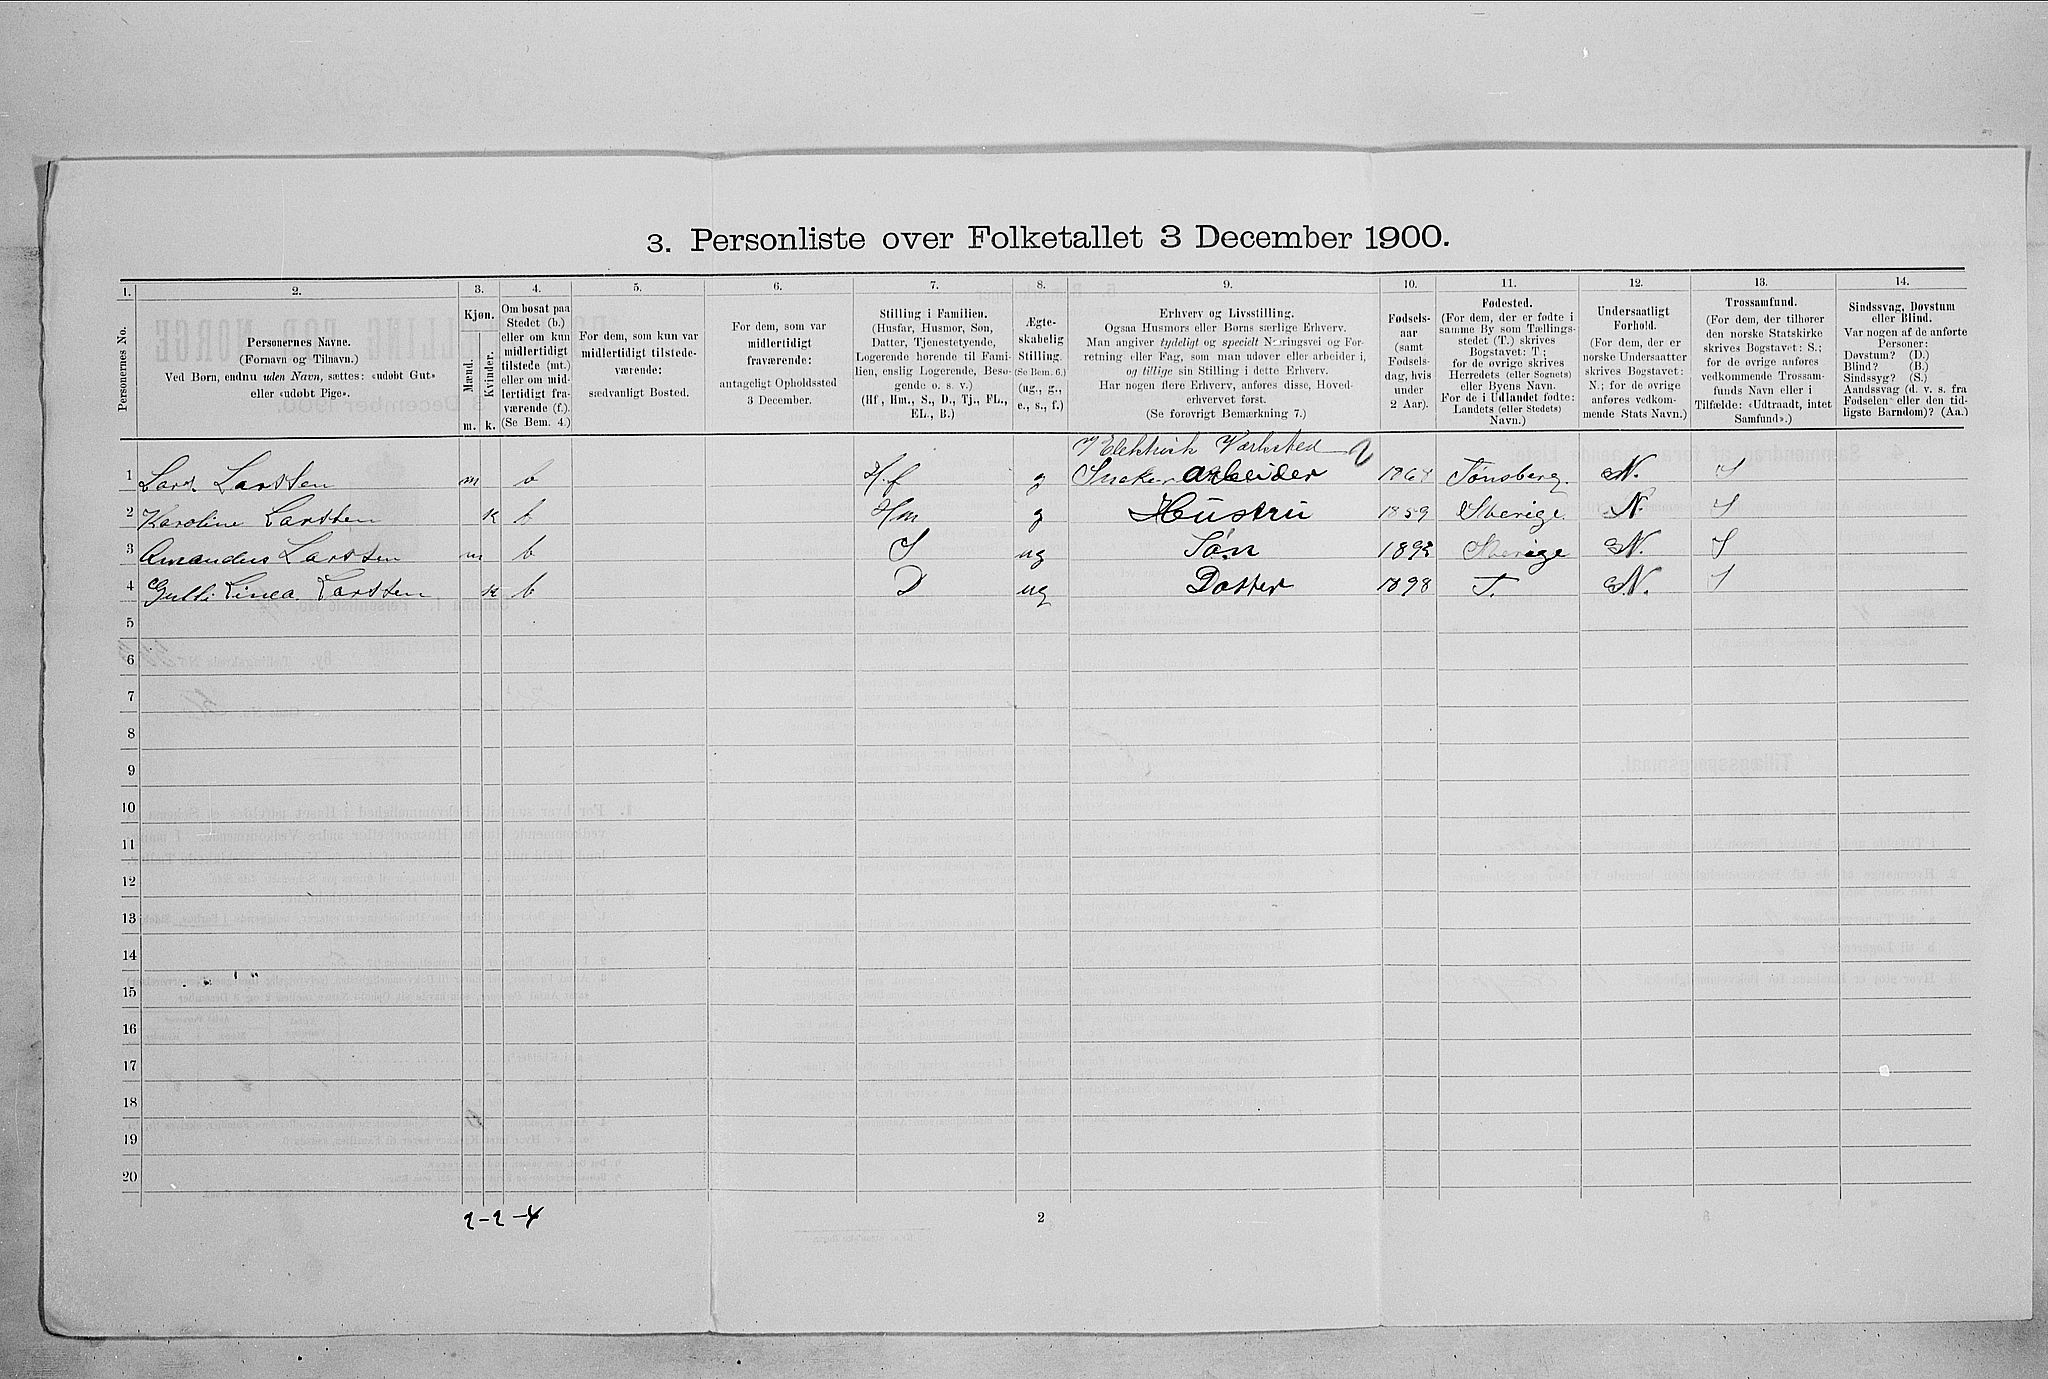 3. Personliste over Folketallet 3 December 1900.
1. 2. 3. 4. 5. 6. 7. 8. 9. 10. 11. 12. 13. 14.
Personernes No.
Personernes Navne.
(Fornavn og Tilnavn.)
Ved Børn, endnu uden Navn, sættes: «udøbt Gut»
eller «udøbt Pige».
Kjøn.
Mænd.
Kvinder.
m. k.
Om bosat paa
Stedet (b.)
eller om kun
midlertidigt
tilstede (mt.)
eller om mid-
lertidigt fra-
værende (f.).
(Se Bem. 4.)
For dem, som kun var
midlertidigt tilstede-
værende:
sædvanligt Bosted.
For dem, som var
midlertidigt
fraværende:
antageligt Opholdssted
3 December.
Stilling i Familien.
(Husfar, Husmor, Søn,
Datter, Tjenestetyende,
Logerende hørende til Fami-
lien, enslig Logerende, Besø-
gende o. s. v.)
(Hf., Hm., S., D., Tj., FL.,
EL., B.)
Ægte-
skabelig
Stilling.
(Se Bem. 6.)
(ug., g.,
e., s., f.)
Erhverv og Livsstilling.
Ogsaa Husmors eller Børns særlige Erhverv.
Man angiver tydeligt og specielt Næringsvei og For-
retning eller Fag, som man udøver eller arbeider i,
og tillige sin Stilling i dette Erhverv.
Har nogen flere Erhverv, anføres disse, Hoved-
erhvervet først.
(Se forøvrigt Bemærkning 7.)
Fødsels-
aar
(samt
Fødsels-
dag, hvis
under
2 Aar).
Fødested.
(For dem, der er fødte i
samme By som Tællings-
stedet (T.) skrives
Bogstavet: T.;
for de øvrige skrives
Herredets (eller Sognets)
eller Byens Navn.
For de i Udlandet fødte:
Landets (eller Stedets)
Navn.)
Undersaatligt
Forhold.
(For dem, der er
norske Undersaatter
skrives Bogstavet:
N.; for de øvrige
anføres vedkom-
mende Stats Navn.)
Trossamfund.
(For dem, der tilhører
den norske Statskirke
skrives Bogstavet: S.;
for de øvrige anføres
vedkommende Trossam-
funds Navn eller i
Tilfælde: «Udtraadt, intet
Samfund».)
Sindssvag, Døvstum
eller Blind.
Var nogen af de anførte
Personer:
Døvstum? (D.)
Blind? (B.)
Sindssyg? (S.)
Aandssvag (d. v. s. fra
Fødselen eller den tid-
ligste Barndom)? (Aa.)
Elektrisk Værksted
1 Lars Larssen m b H.f g arbeider Tønsberg. N. S
2 Karoline Larssen k b Hm g Hustru 1859 Sverige. N. S
3 Amandus Larssen m b S ug Søn 1892 Sverige N. S
4 Gulli Linea Larssen k b D ug Datter 1898 T. N. S
5
6
7
8
9
10
11
12
13
14
15
16
17
18
19
20
2-2-4
2